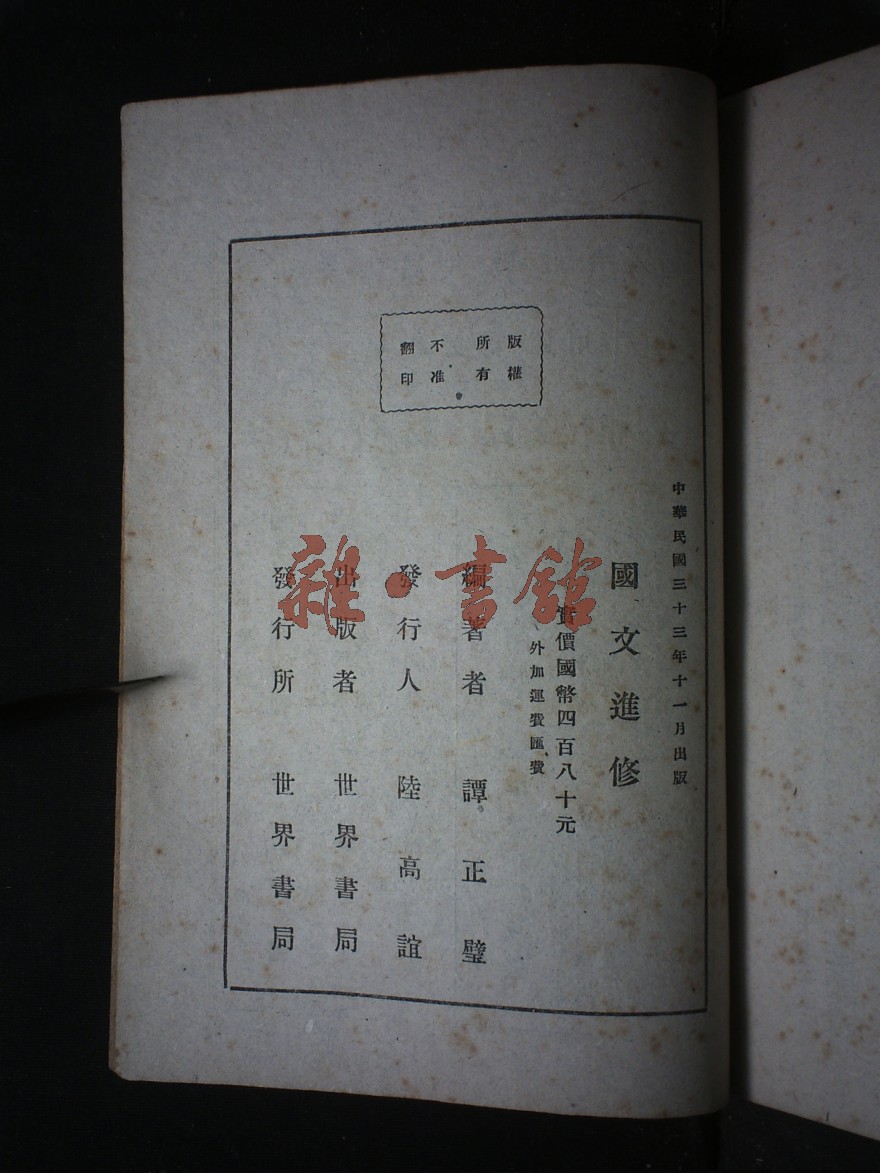 中華民國三十三年十一月出版
國文進修
實價國幣四百八十元
外加運費匯費
版權所有
不准翻印
編著者 譚正璧
發行人 陸高誼
出版者 世界書局
發行所 世界書局
雜·書館